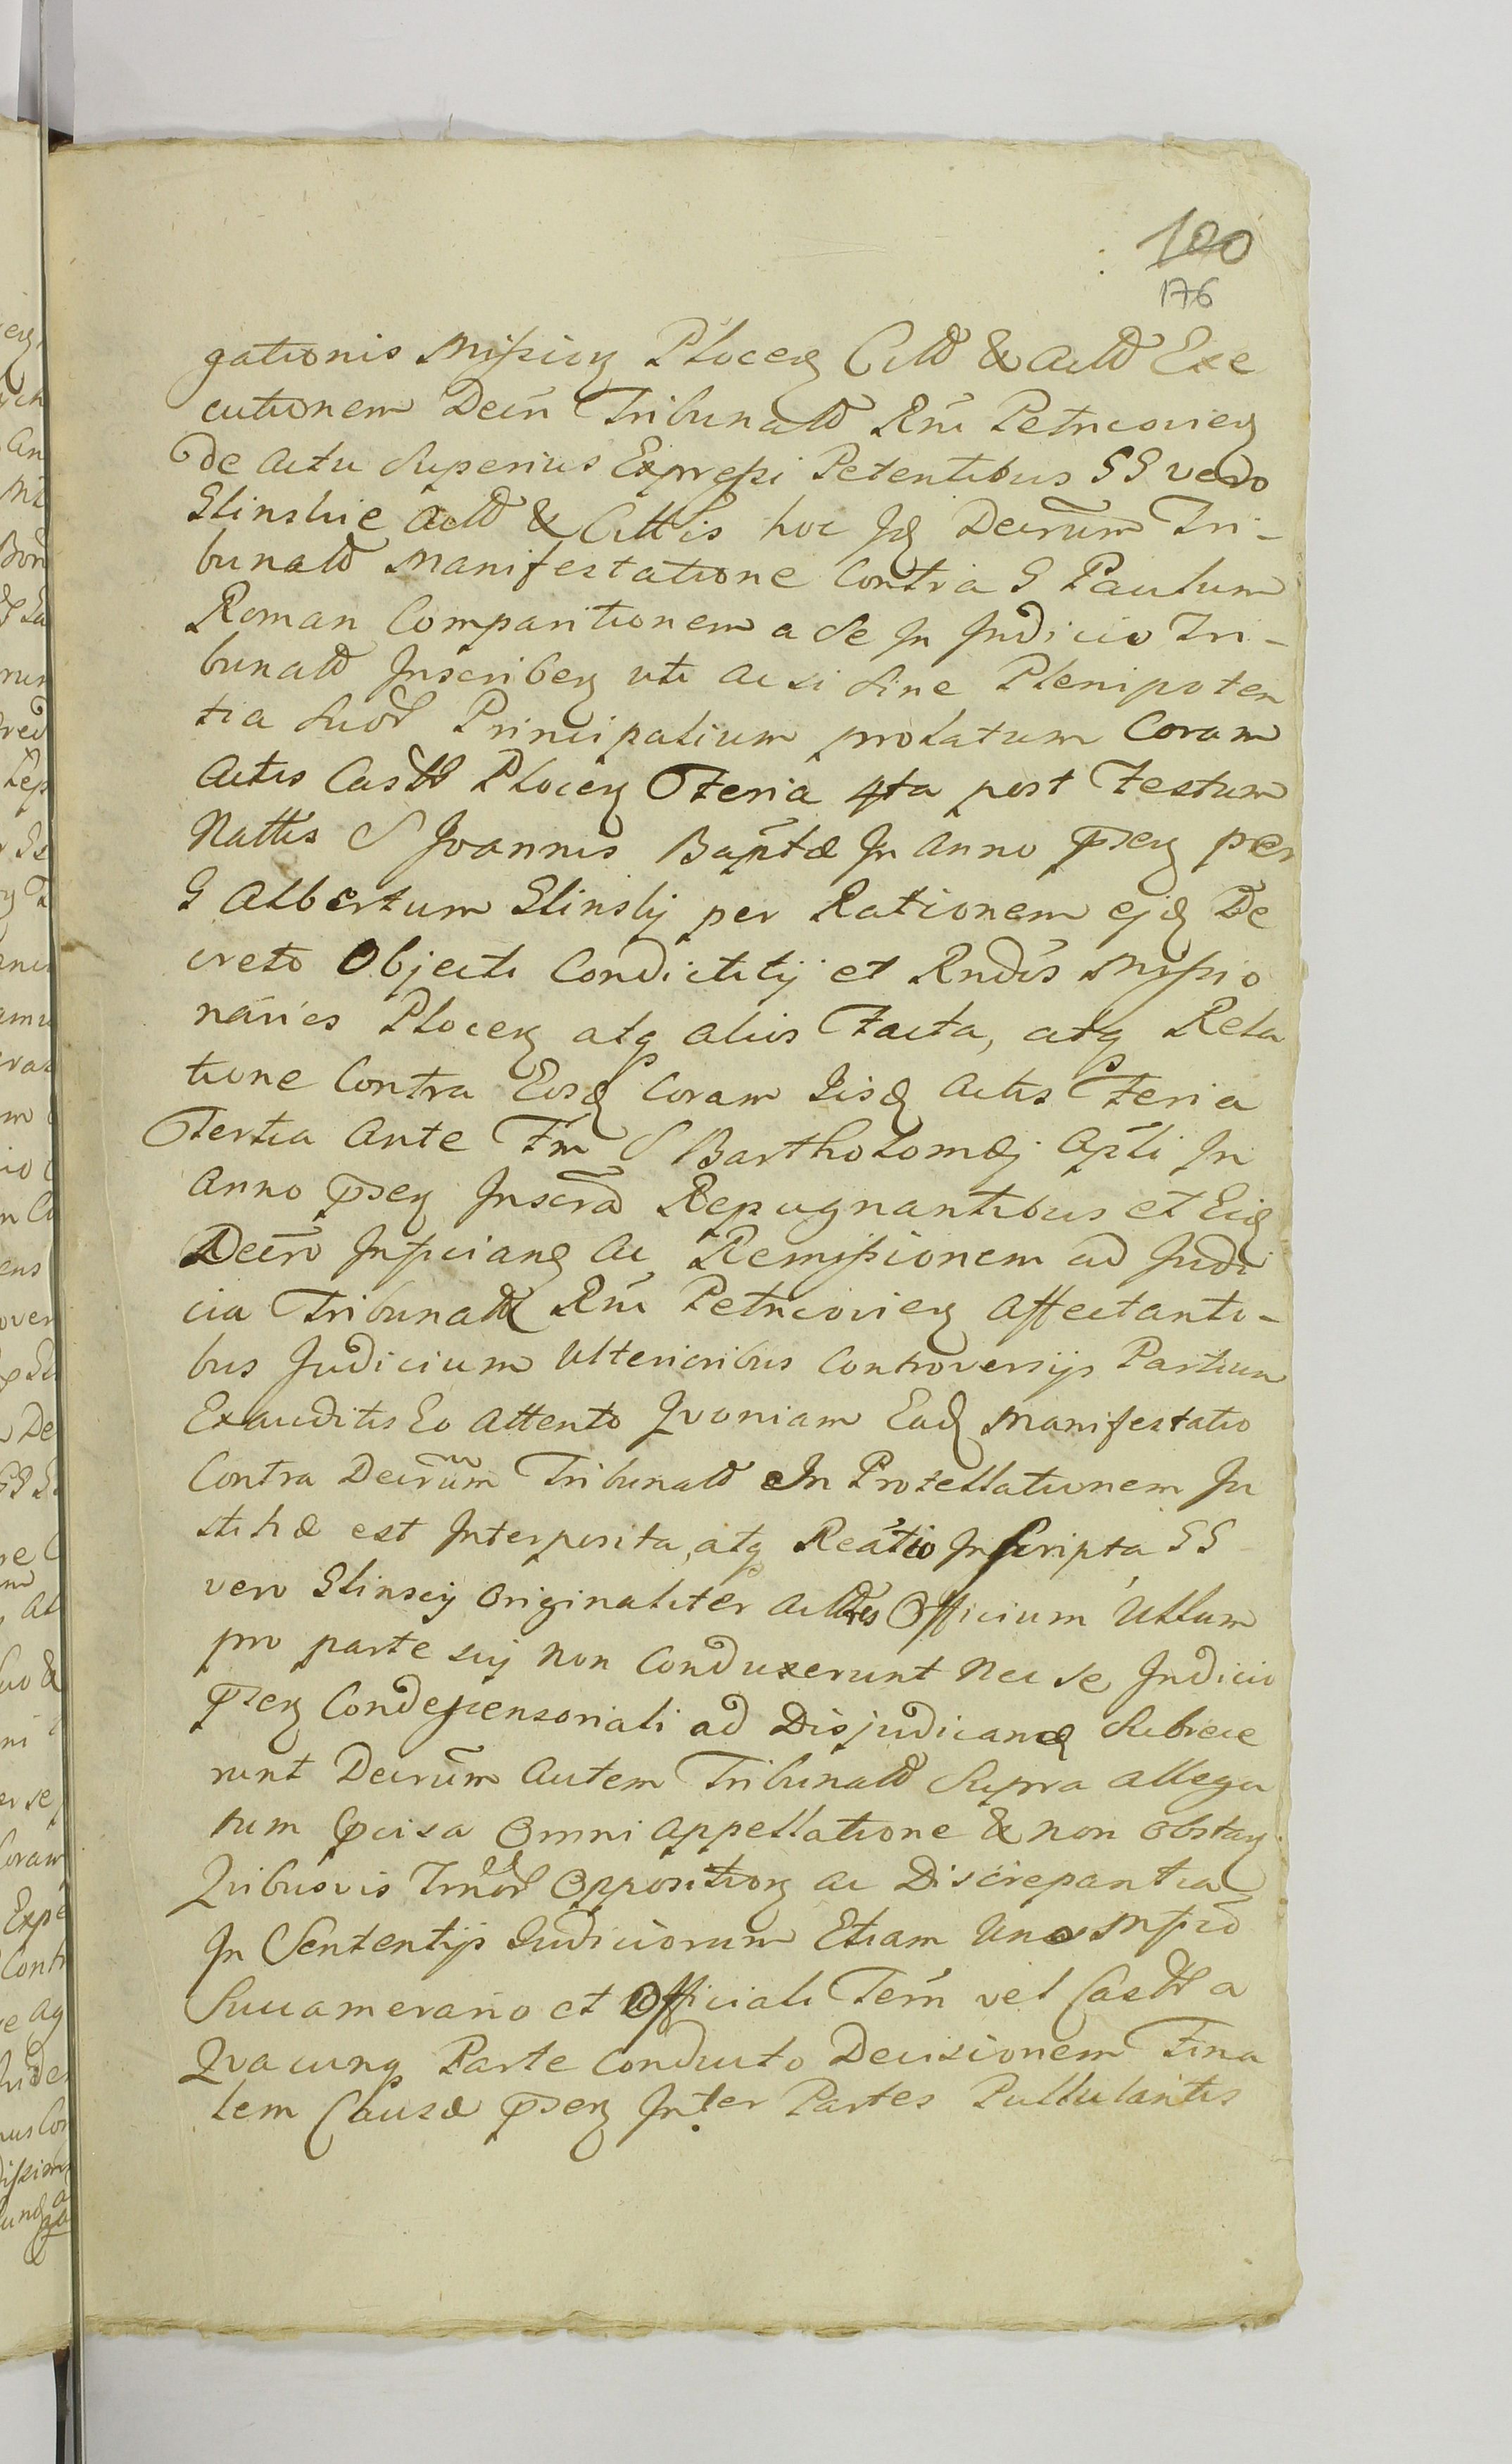 100
176
gationis Missioñ Płoceñ Citt & Actt Exe
cutionem Decñ Tribunatt Rñi Petricovieñ
de actu Superius Expressi Petentibus GG vero
Glinskie Actt & Cittis hoc Id Decrum Tri-
bunatt Manifestatione Contra G Paulum
Roman Comparitionem a se In Judicio Tri-
bunatt Inscribeñ uti ac si sine Plenipoten
tia suor Principalium prolatum Coram
Actis Castt Płoceñ Feria 4ta post Festum
Nattis S Joannis Baptæ In Anno pseñ per
G Albertum Glinskÿ per Rationem ejd De
creto Objecti Condictitij et Rndis Missio
narÿs Płoceñ atq aliis Facta, atq Rela
tione Contra Eosd Coram Iisd Actis Feria
Tertia Ante Fm S Bartholomæj Apli In
Anno pseñ Inscra Repugnantibus et Eid
Decro Insciand ac Remissionem ad Judi
cia Tribunatt Rñi Petricovieñ Affectanti-
bus Judicium Ulterioribus Controversijs Partium
Exauditis Eo Attento Qvoniam Ead Manifestatio
Contra Decrum Tribunatt In Protellationem Ju
stitiæ est Interposita, atq Reatio Inscripta GG
vero Glinscy Originaliter Acttres Officium Ullum
pro parte suj non Conduxerunt Nec se Judicio
pseñ Condescensoriali ad Disjudicand Subiece
runt Decrum Autem Tribunatt Supra allega
tum pcisa Omni Appellatione & non obstañ
Qvibusvis Opposition ac Discrepantia
In Sententijs Judiciorum Etiam Uno
Succamerario et Officiali Terñ vel Castt a
Qvacunq Parte Conducto Decisionem Fina
lem Causæ pseñ Inter Partes Pullulantis